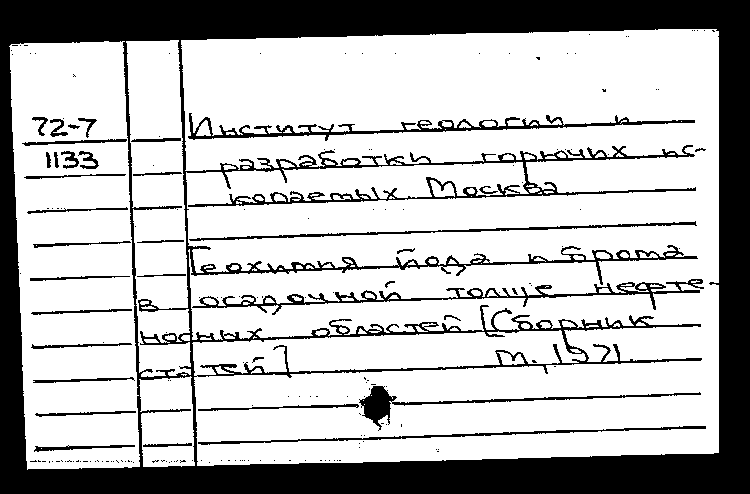 72-7 Институт геологии и
1133 разработки горючих ис-
копаемых Москва
Геохимия йода и брома
в осадочной толще нефте-
носных областей [Сборник
статей] М., 1971.